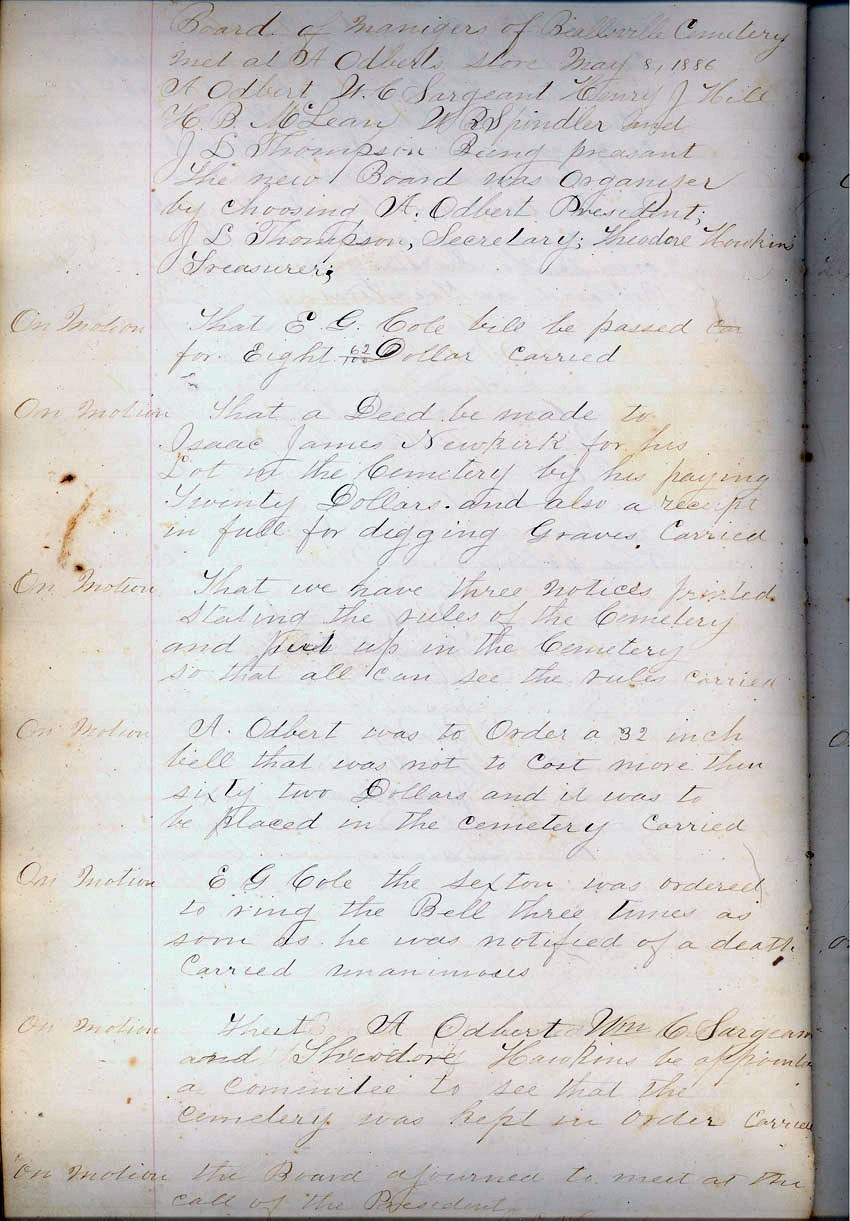 Board of Manigers of Beallsville Cemetery
met at A Odberts store May 8, 1886
A Odbert W. C Sargeant Henry J Hill
H. B McLean W R Spindler and
J L Thompson Being preasant
The new Board was Organiser
by choosing A. Odbert President;
J L Thompson, Secretary; Theodore Hawkins
Treasurer;
On Motion That E. G. Cole bill be passed
for Eight 62/100 Dollar carried
On Motion That a Deed be made to
Isaac James Newkirk for his
Lot in the Cemetery by his paying
Twenty Dollars. and also a receipt
in full for digging Graves. Carried
On Motion That we have three notices printed
stating the rules of the Cemetery
and put up in the Cemetery
so that all can see the rules carried
On Motion A. Odbert was to Order a 32 inch
bell that was not to cost more then
sixty two Dollars and it was to
be placed in the cemetery carried
On Motion E G Cole the sexton was ordered
to ring the Bell three times as
soon as he was notified of a death
Carried
On Motion That A Odbert Wm C. Sargean
and Theodore Hawkins be appointed
a commitee to see that the
cemetery was kept in order carried
On Motion the Board ajourned to meet at the
call of the President